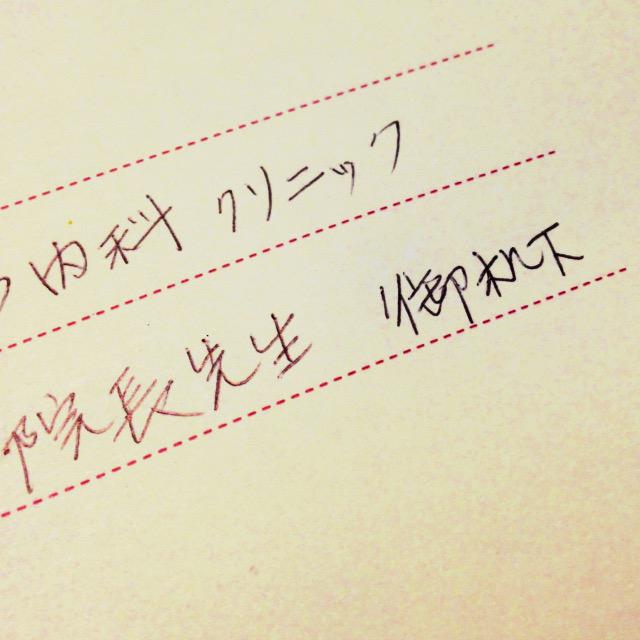 内科 クリニック
院長先生 御机下